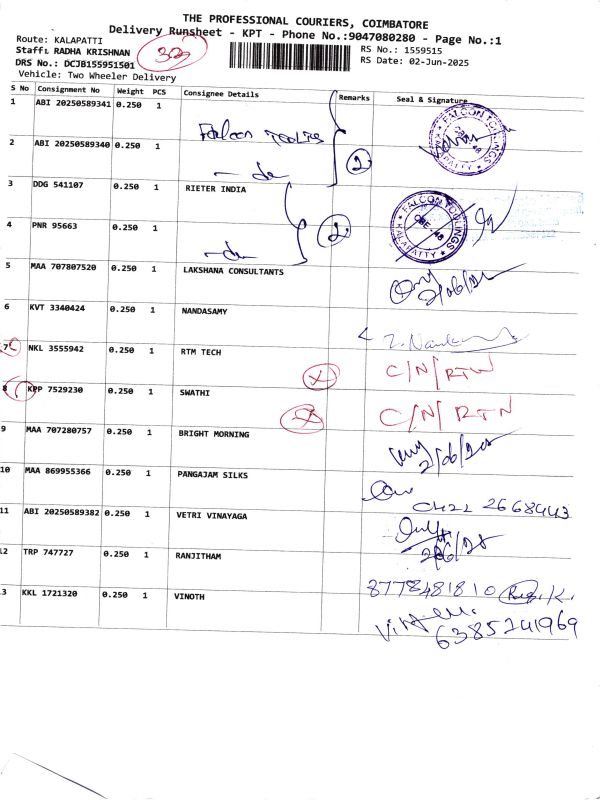 THE PROFESSIONAL COURIERS, COIMBATORE
Delivery Runsheet - KPT - Phone No.:9047080280 - Page No.:1
Route: KALAPATTI
RS No.: 1559515
Staff: RADHA KRISHNAN
RS Date: 02-Jun-2025
DRS No.: DCJB155951501
Vehicle: Two Wheeler Delivery
S No Consignment No Weight PCS Consignee Details Remarks Seal & Signature
1 ABI 20250589341 0.250 1 Falcon
FALCON TOOLINGS
2 ABI 20250589340 0.250 1 2
3 DDG 541107 0.250 1 RIETER INDIA
FALCON TOOLINGS KALAPATTY CBE - 48
4 PNR 95663 0.250 1 2
5 MAA 707807520 0.250 1 LAKSHANA CONSULTANTS
6 KVT 3340424 0.250 1 NANDASAMY
7 NKL 3555942 0.250 1 RTM TECH C/N/RTN
8 KPP 7529230 0.250 1 SWATHI C/N/RTN
9 MAA 707280757 0.250 1 BRIGHT MORNING
10 MAA 869955366 0.250 1 PANGAJAM SILKS
11 ABI 20250589382 0.250 1 VETRI VINAYAGA
12 TRP 747727 0.250 1 RANJITHAM 8778481810
3 KKL 1721320 0.250 1 VINOTH 6385241969